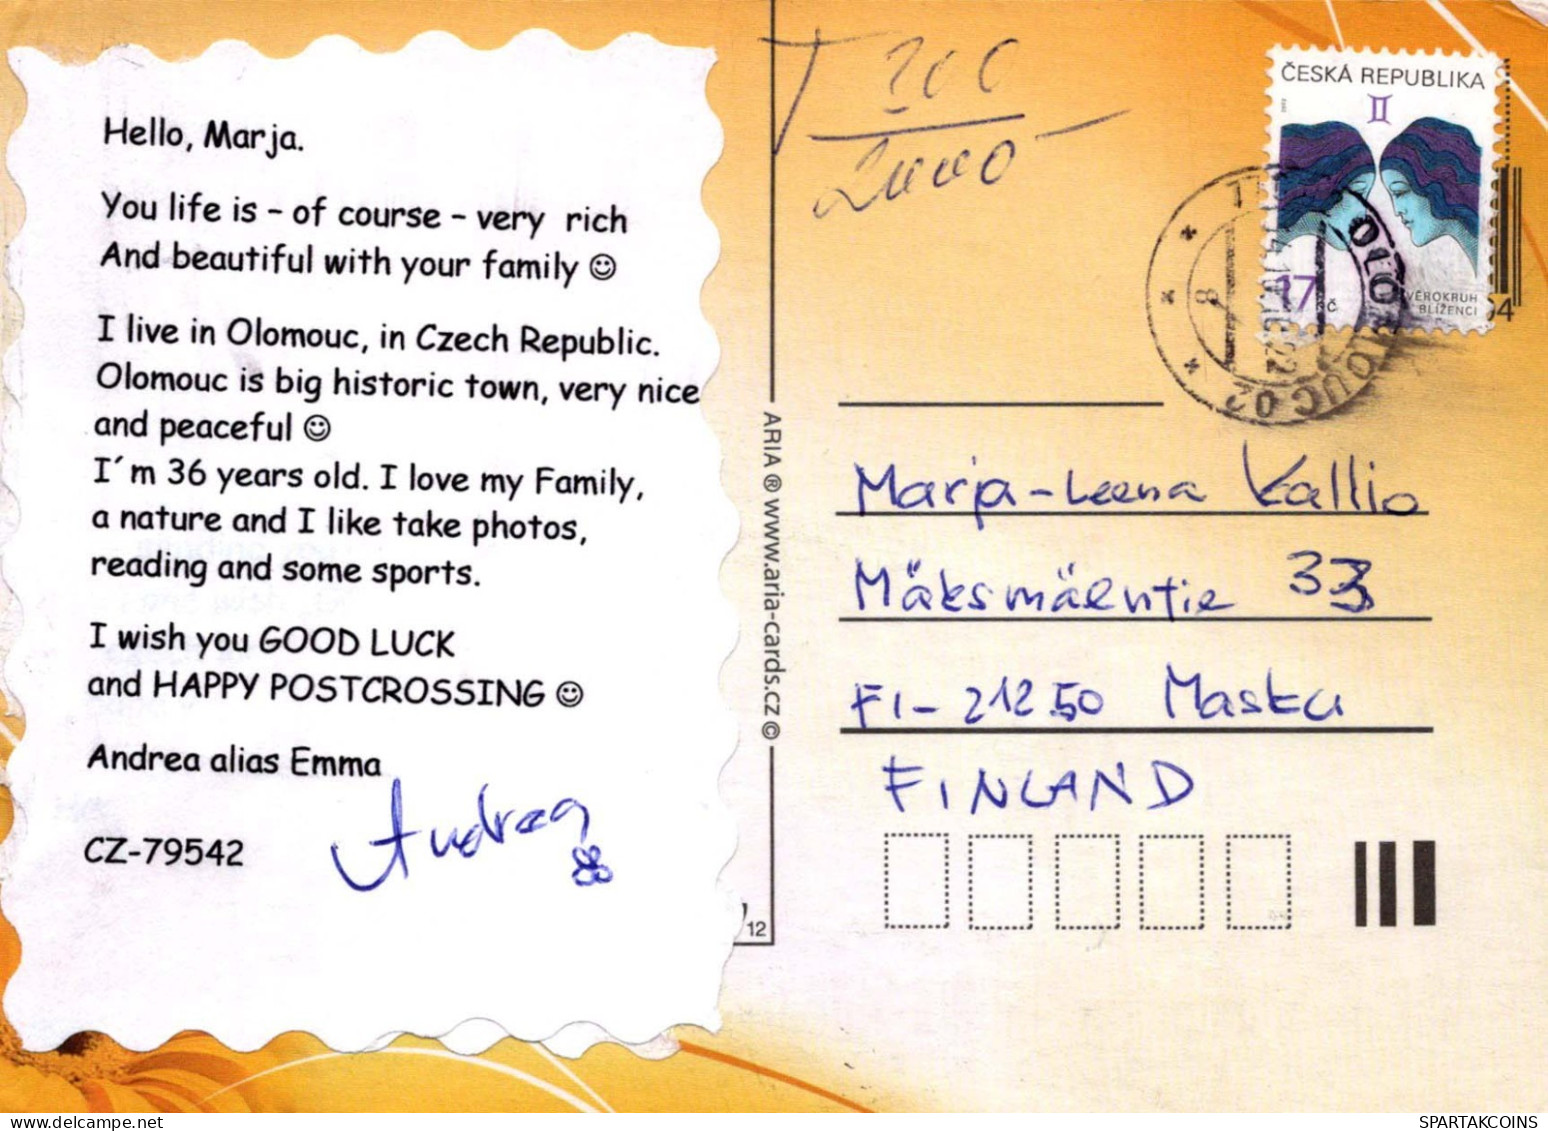 Hello, Marja.
You life is – of course – very rich
And beautiful with your family ☺
I live in Olomouc, in Czech Republic.
Olomouc is big historic town, very nice
and peaceful ☺
I´m 36 years old. I love my Family,
a nature and I like take photos,
reading and some sports.
I wish you GOOD LUCK
and HAPPY POSTCROSSING ☺
Andrea alias Emma
Andrea
CZ-79542
12
ARIA ® www.aria-cards.cz ©
T 200
2000
ČESKÁ REPUBLIKA
17 Kč
ZVĚROKRUH
BLÍŽENCI
OLOMOUC 02
Marja-Leena Kallio
Mäksmäentie 33
FI-21250 Masku
FINLAND
SPARTAKCOINS